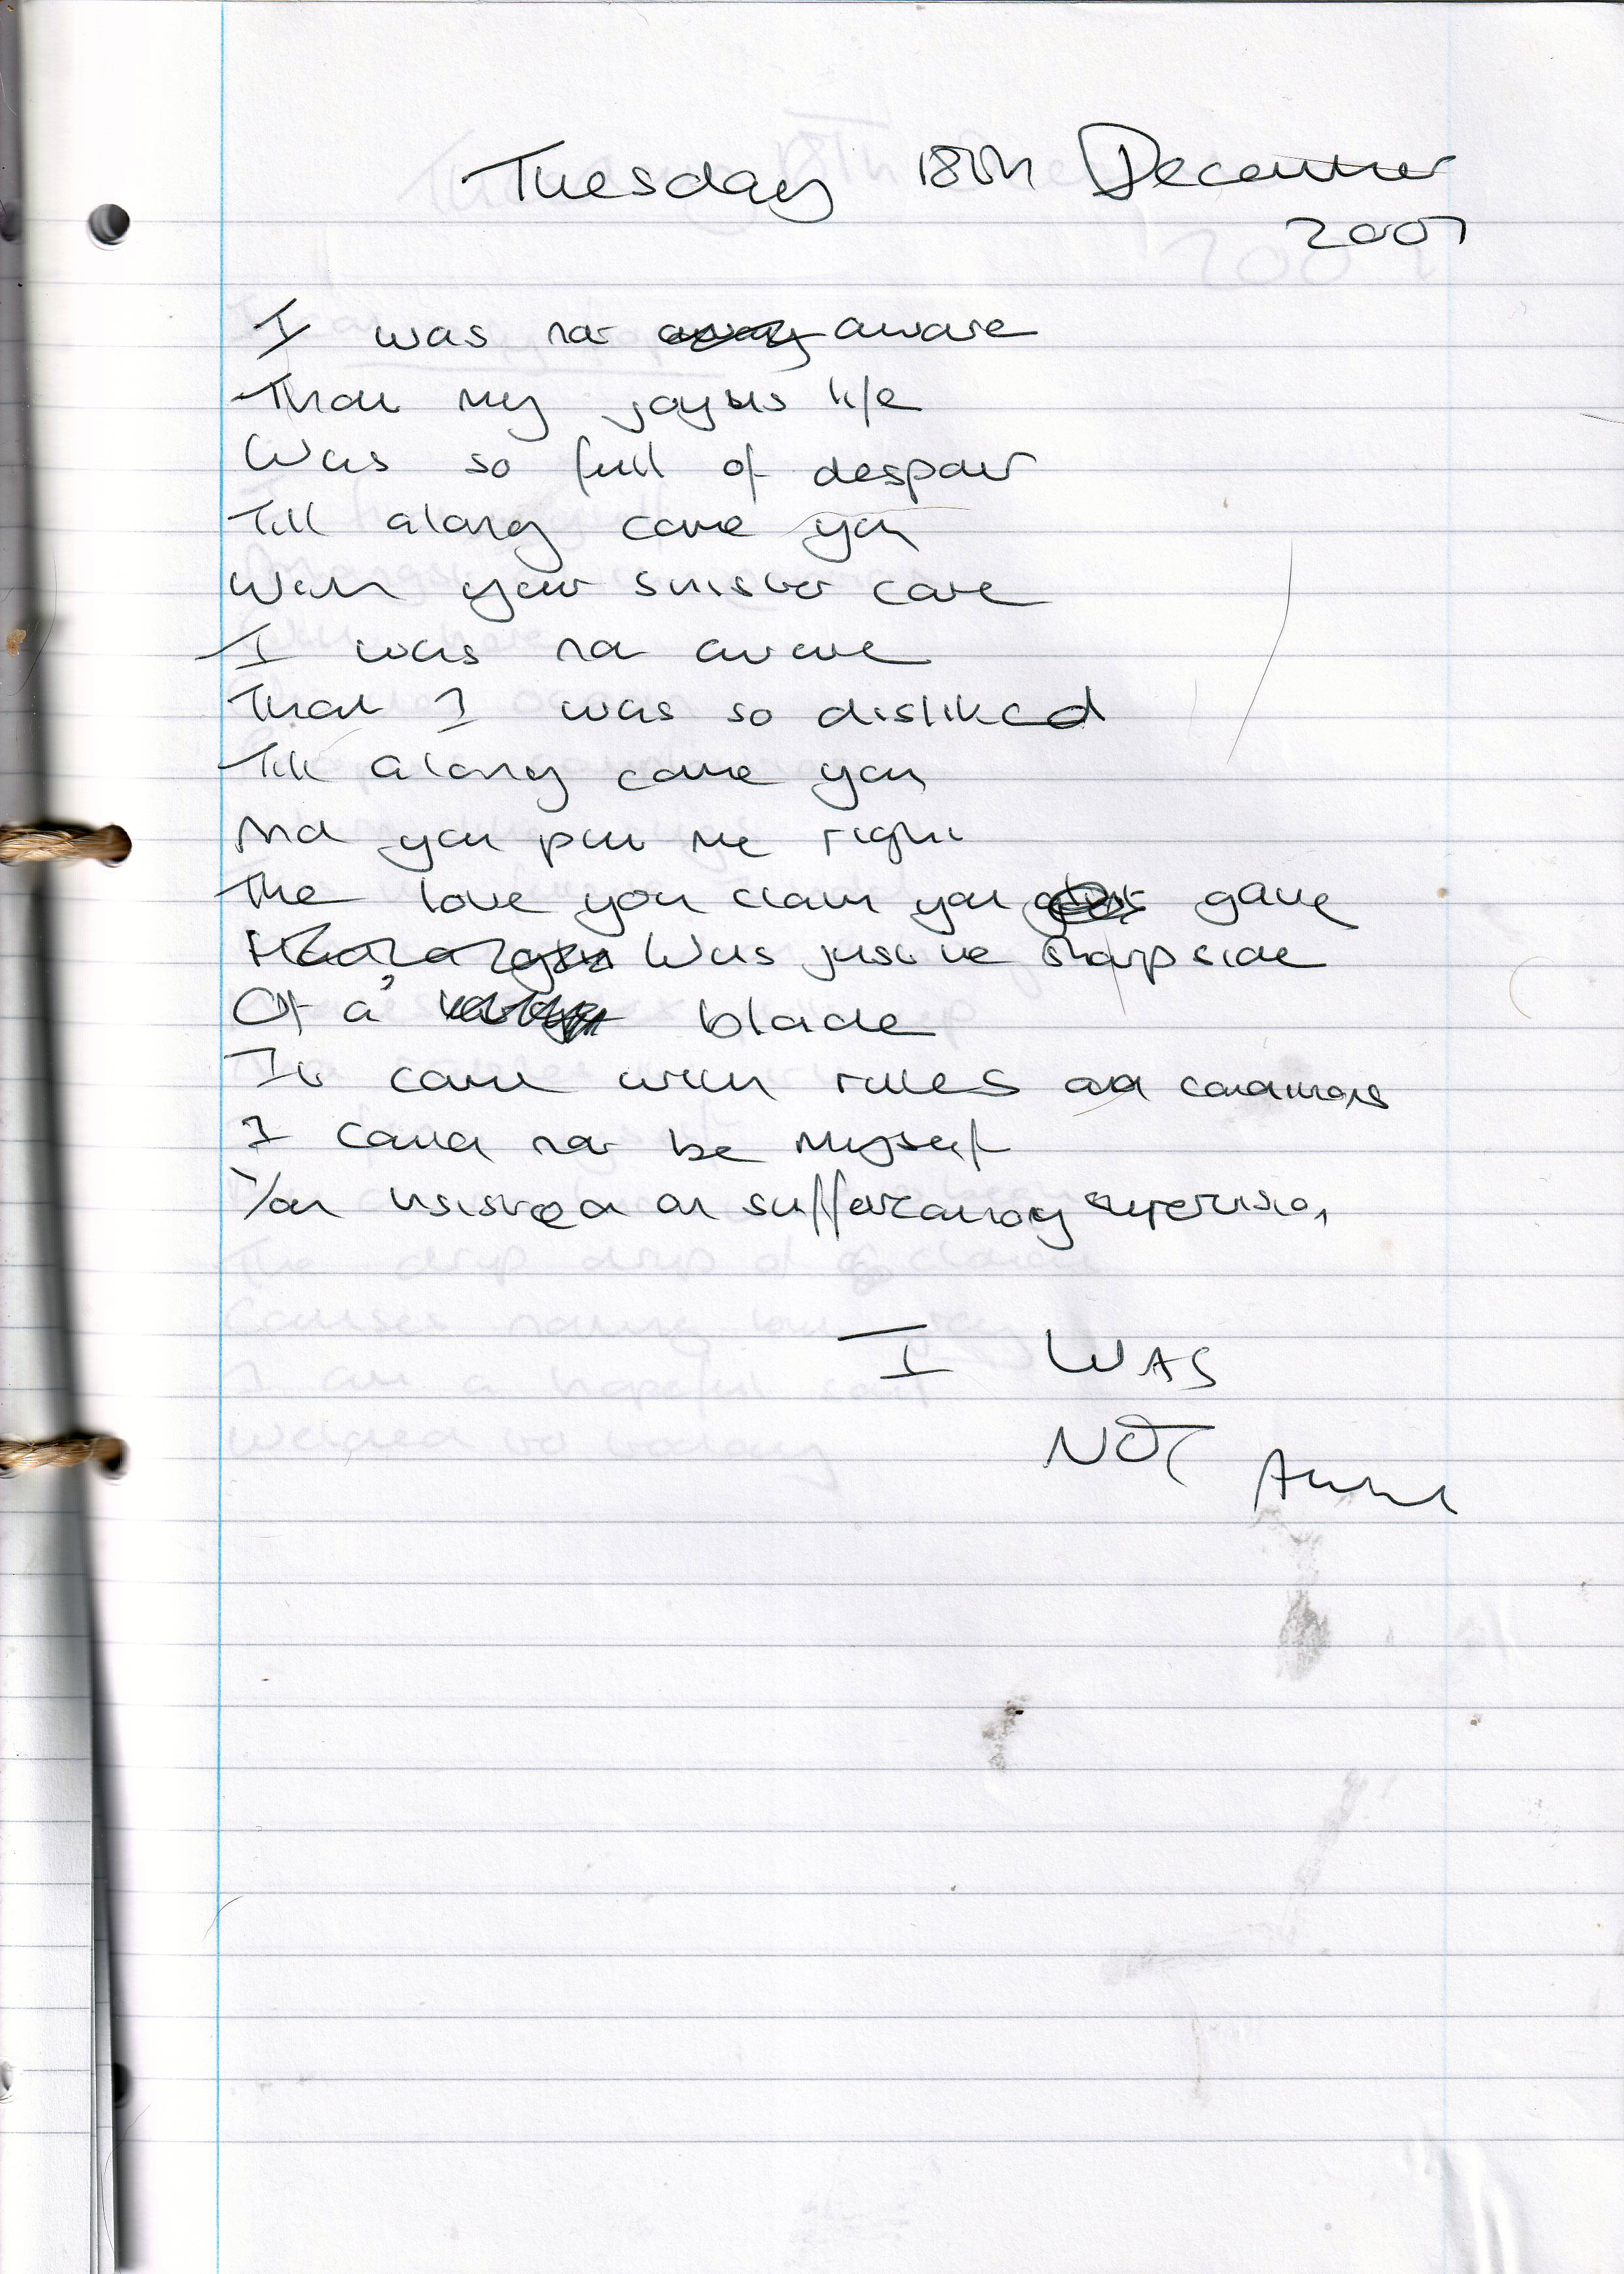 Tuesday 18th December
2007
I was not away aware
That my joyous life
Was so full of despair
Till along came you
With your sinister care
I was not aware
That I was so disliked
Till along came you
And you put me right
The love you claim you gave
Was just the sharp side
Of a blade
It came with rules and conditions
I could not be myself
You insisted on suffocating supervision
I WAS
NOT